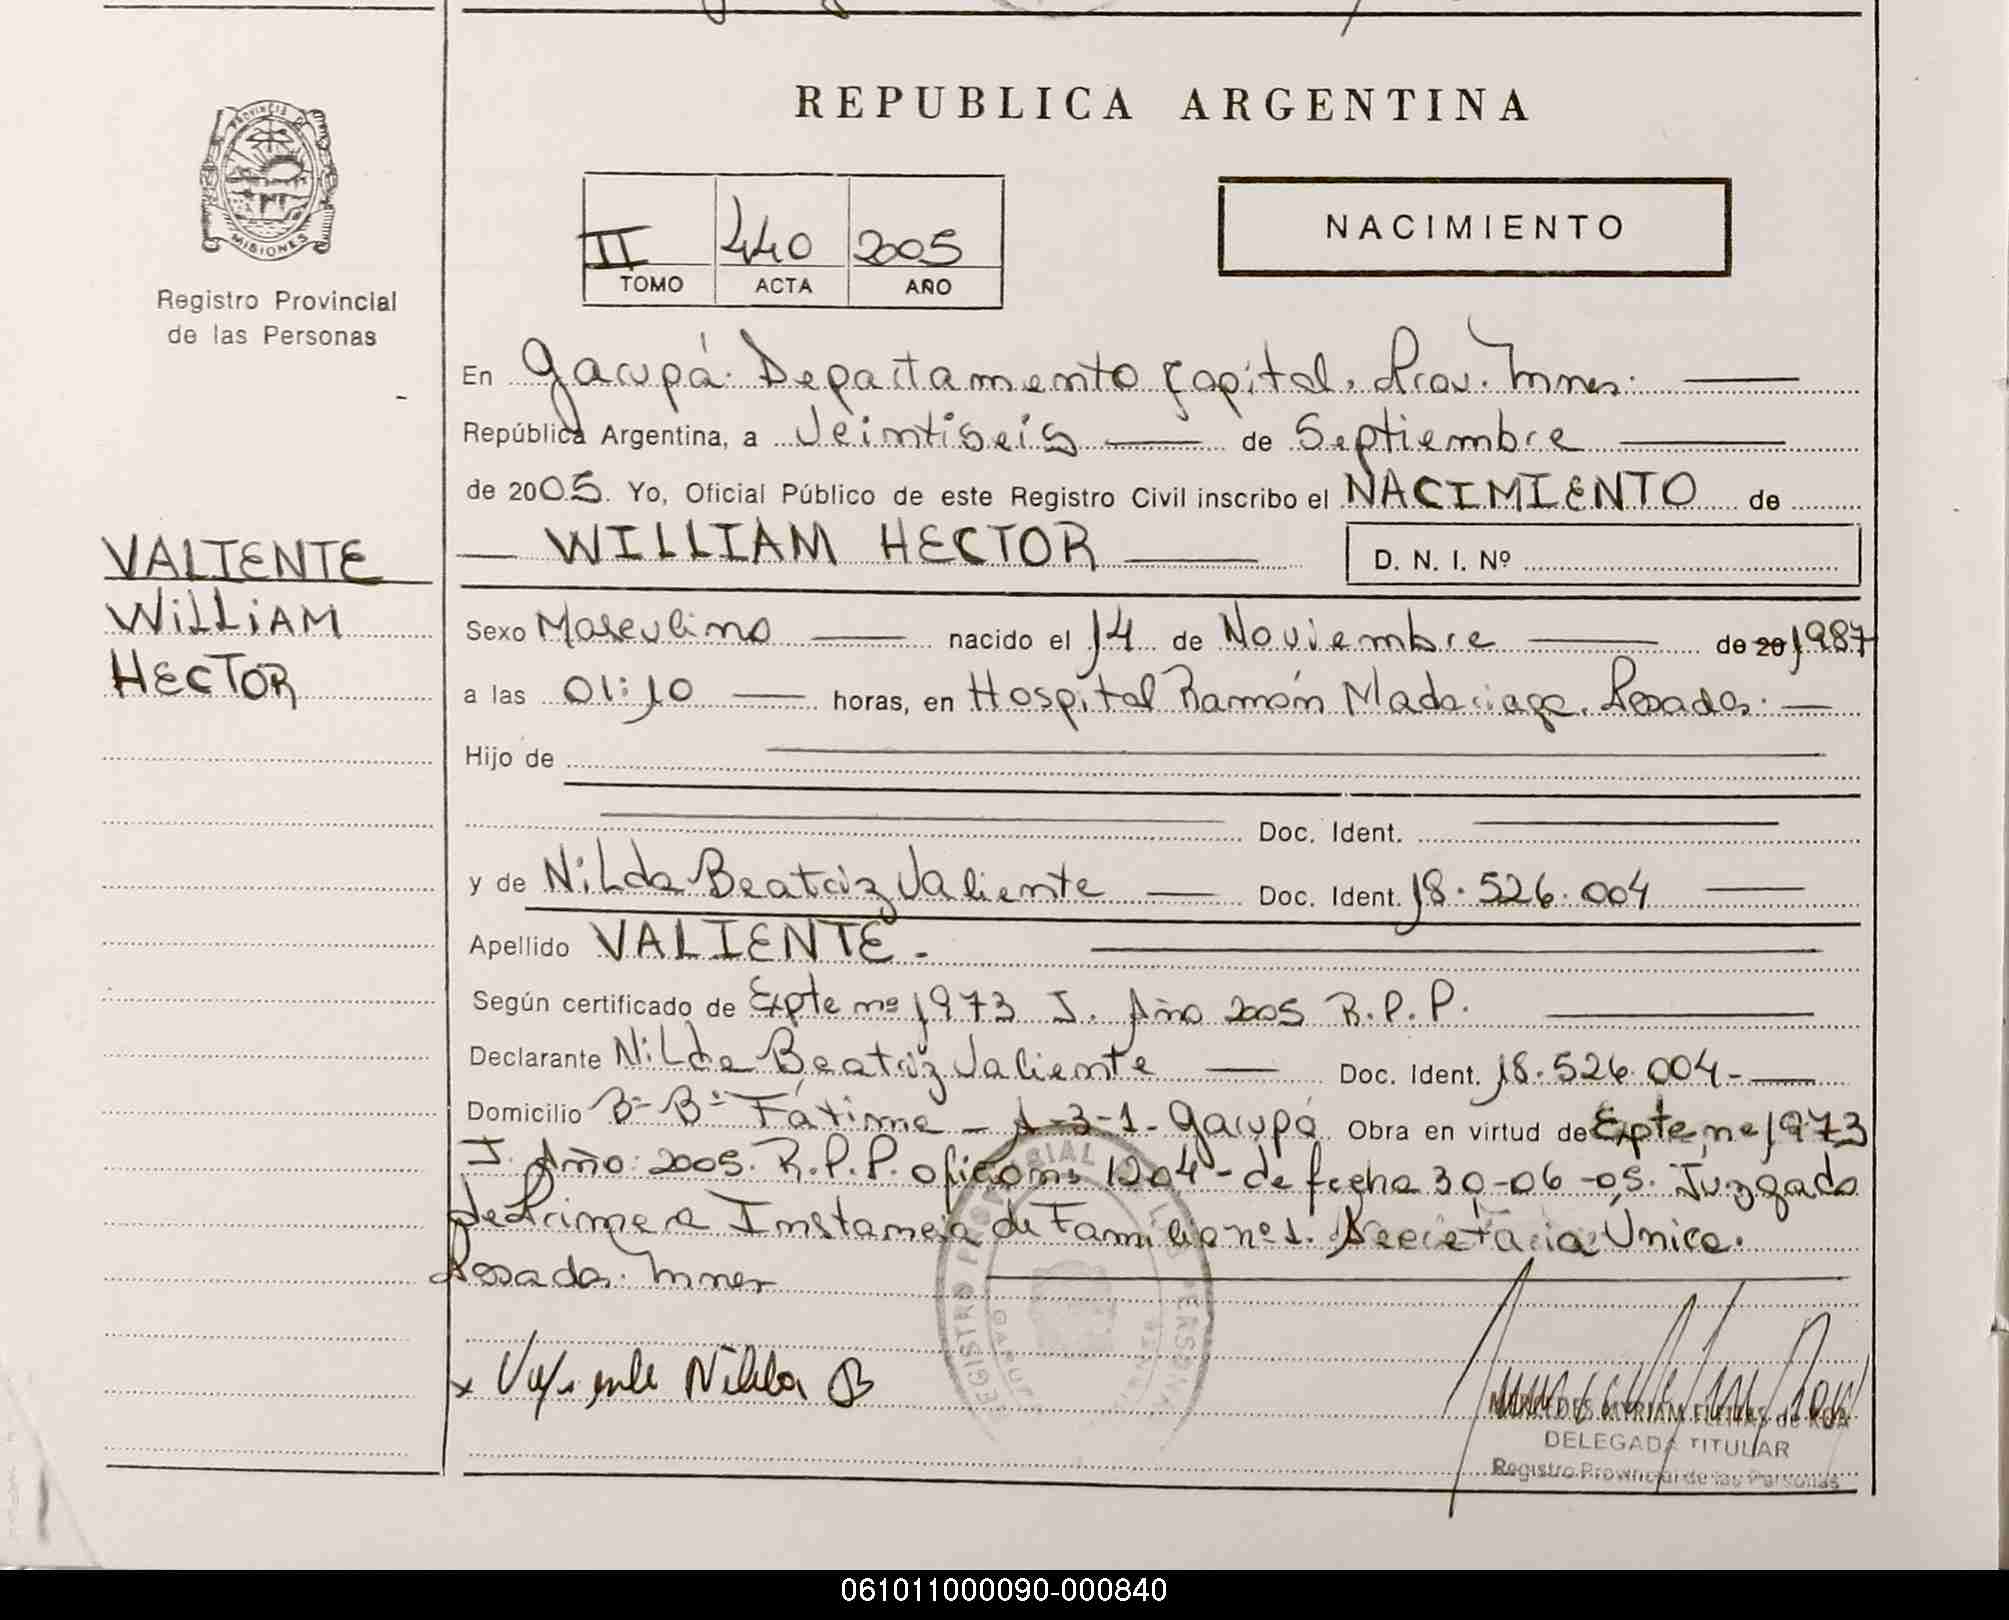 REPUBLICA ARGENTINA
PROVINCIA D MISIONES
Registro Provincial
de las Personas
II 440 2005
TOMO ACTA AÑO
NACIMIENTO
En Garupá. Departamento Capital. Prov. Mnes.
República Argentina, a Veintiseis de Septiembre
de 2005. Yo, Oficial Público de este Registro Civil inscribo el NACIMIENTO de
WILLIAM HECTOR D. N. I. Nº
VALIENTE
WILLIAM
HECTOR
Sexo Masculino nacido el 14 de Noviembre de 20 1987
a las 01:10 horas, en Hospital Ramón Madariaga. Posadas.
Hijo de
Doc. Ident.
y de Nilda Beatriz Valiente Doc. Ident. 18.526.004
Apellido VALIENTE.
Según certificado de Expte nº 1973 J. Año 2005 R.P.P.
Declarante Nilda Beatriz Valiente Doc. Ident. 18.526.004-
Domicilio Bº Fátima - 3-1- Garupá. Obra en virtud de Expte nº 1973
J. Año: 2005. R.P.P. oficio nº 1204- de fecha 30-06-05. Juzgado
de Primera Instancia de Familia nº 1. Secretaria Única.
Posadas. Mnes
x Valiente Nilda B
REGISTRO PROVINCIAL DE LAS PERSONAS
GARUPA
MERCEDES MYRIAM FLEITAS de ROA
DELEGADA TITULAR
Registro Provincial de las Personas
061011000090-000840